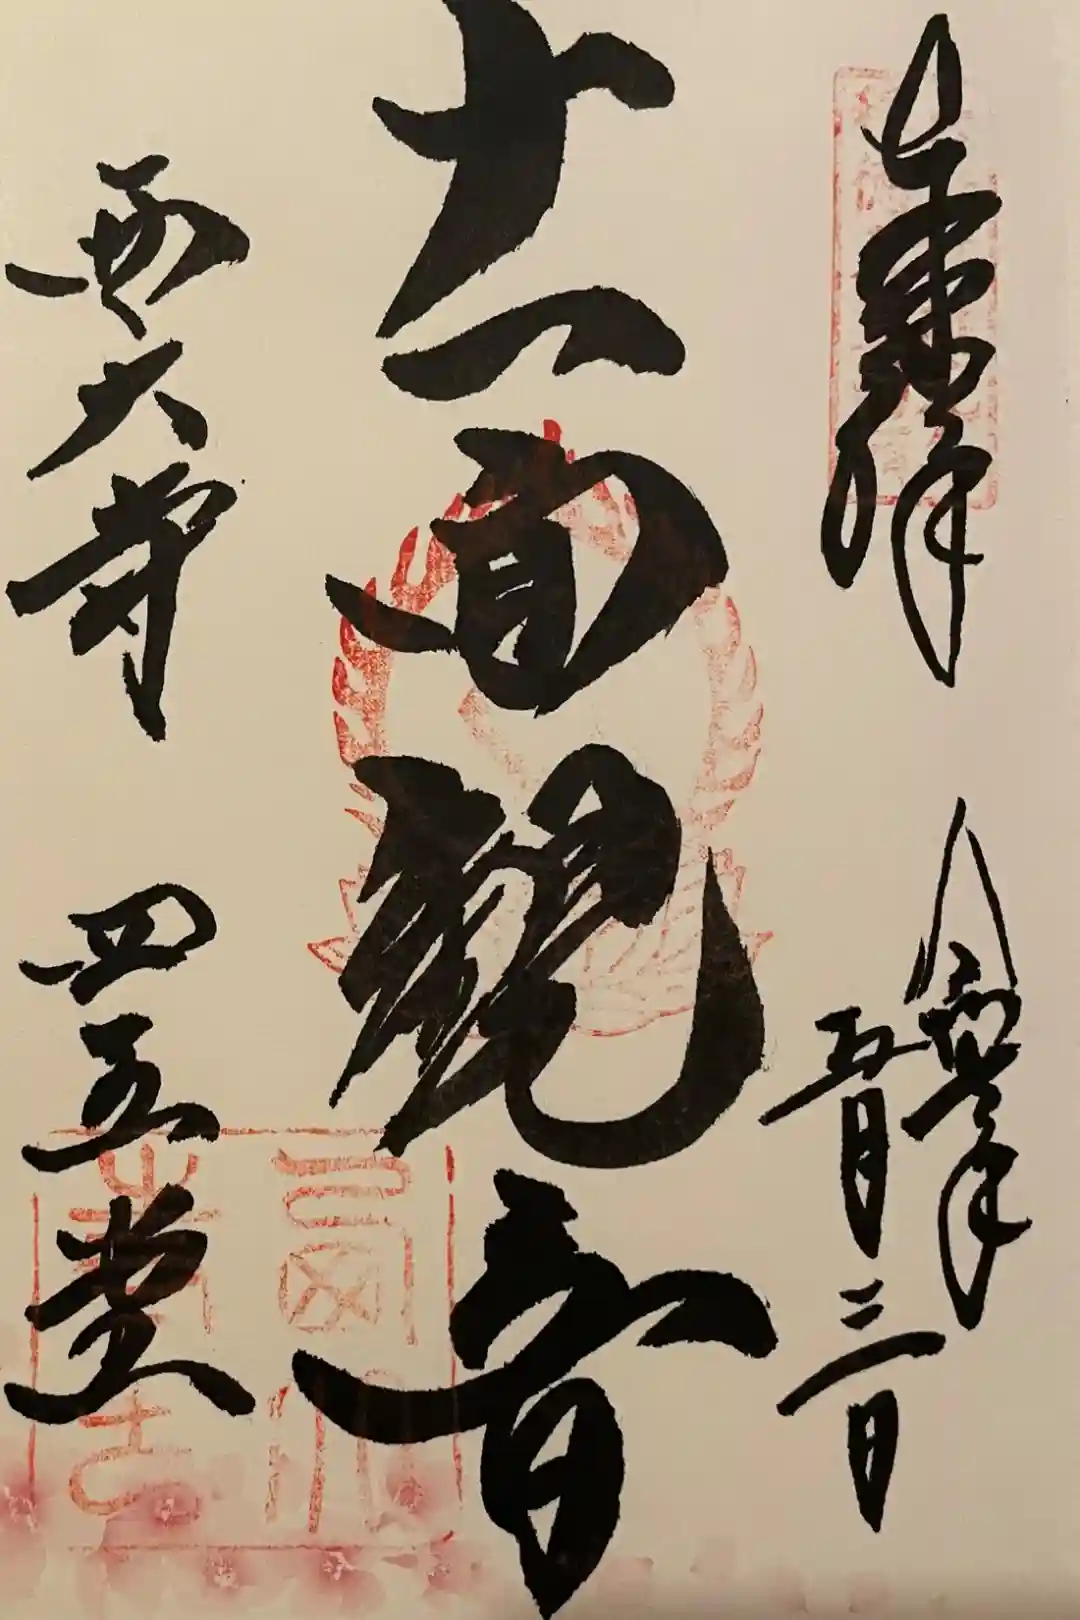 奉拝
令和元年
五月三日
十一面観音
西大寺 四王堂